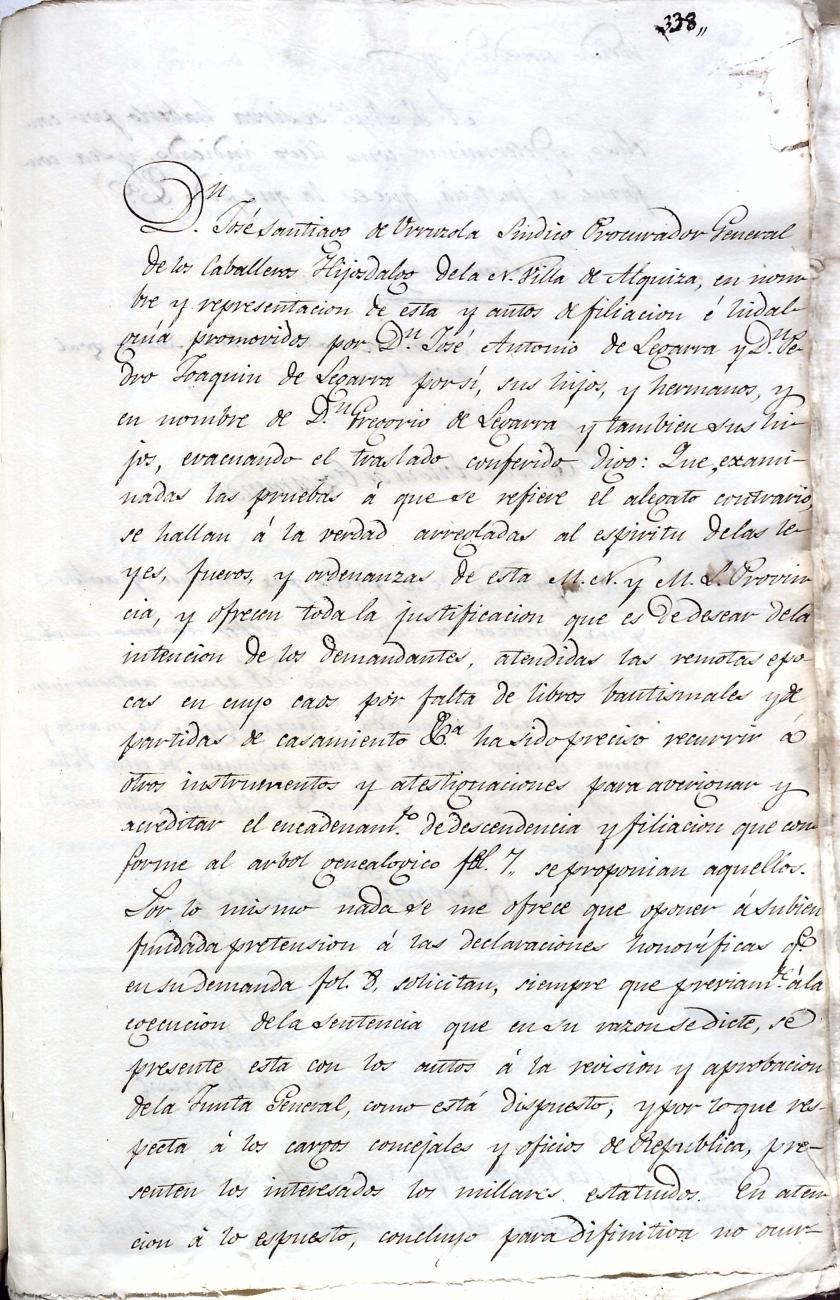 338,,
Dn
D. José Santiago de Urruzola Sindico Procurador General
de los Caballeros Hijosdalgo de la N. Villa de Alquiza, en nom-
bre y representacion de esta y autos de filiacion é hidal-
guia promovidos por Dn. José Antonio de Legarra y Dn. Pe-
dro Joaquin de Legarra por sí, sus hijos, y hermanos, y
en nombre de Dn. Gregorio de Legarra y tambien sus hi-
jos, evacuando el traslado conferido digo: Que, exami-
nadas las pruebas á que se refiere el alegato contrario,
se hallan á la verdad arregladas al espiritu de las le-
yes, fueros, y ordenanzas de esta M. N. y M. L. Provin-
cia, y ofrecen toda la justificacion que es de desear de la
intencion de los demandantes, atendidas las remotas epo-
cas en cuyo caos por falta de libros bautismales y de
partidas de casamiento &a ha sido preciso recurrir á
otros instrumentos y atestiguaciones para averiguar y
acreditar el encadenamto. de descendencia y filiacion que con-
forme al arbol genealogico fol. 7,, se proponian aquellos.
Por lo mismo nada se me ofrece que oponer á su bien
fundada pretension á las declaraciones honoríficas qe.
en su demanda fol. 8, solicitan, siempre que previamte. á la
egecucion de la sentencia que en su razon se dicte, se
presente esta con los autos á la revision y aprobacion
de la Junta General, como está dispuesto; y por lo que res-
pecta á los cargos concejales y oficios de Republica, pre-
senten los interesados los millares estatuidos. En aten-
cion á lo espuesto, concluyo para difinitiva no ocur-